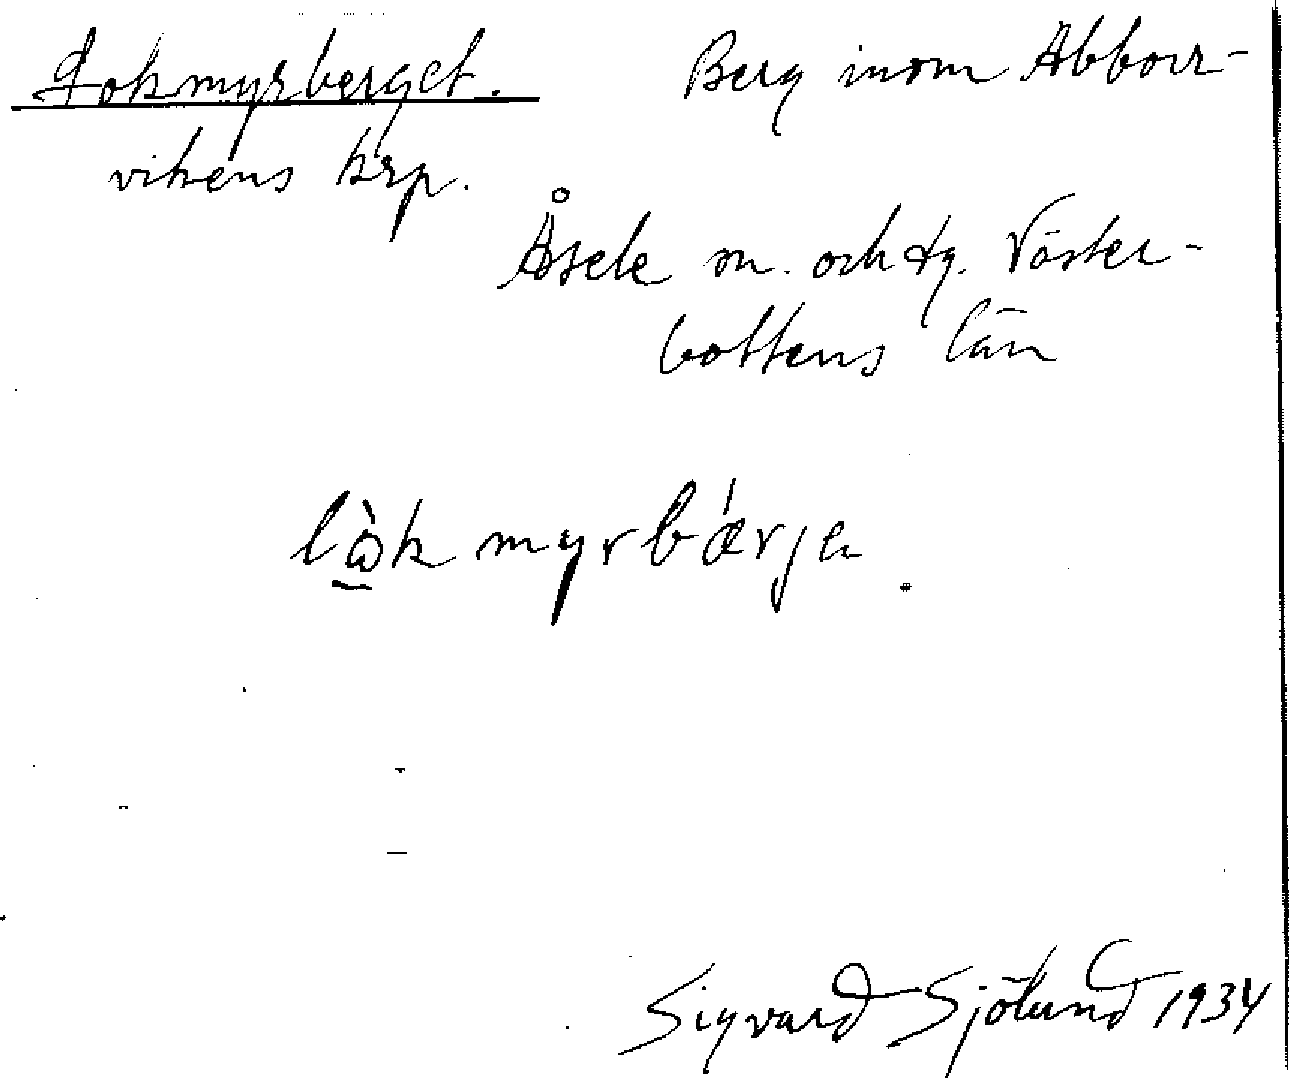 Lokmyrberget. Berg inom Abborr-
vikens krp.
Åsele sn. och tg. Väster-
bottens län
lò̱kmyrbǽrje.
Sigvard Sjölund 1934